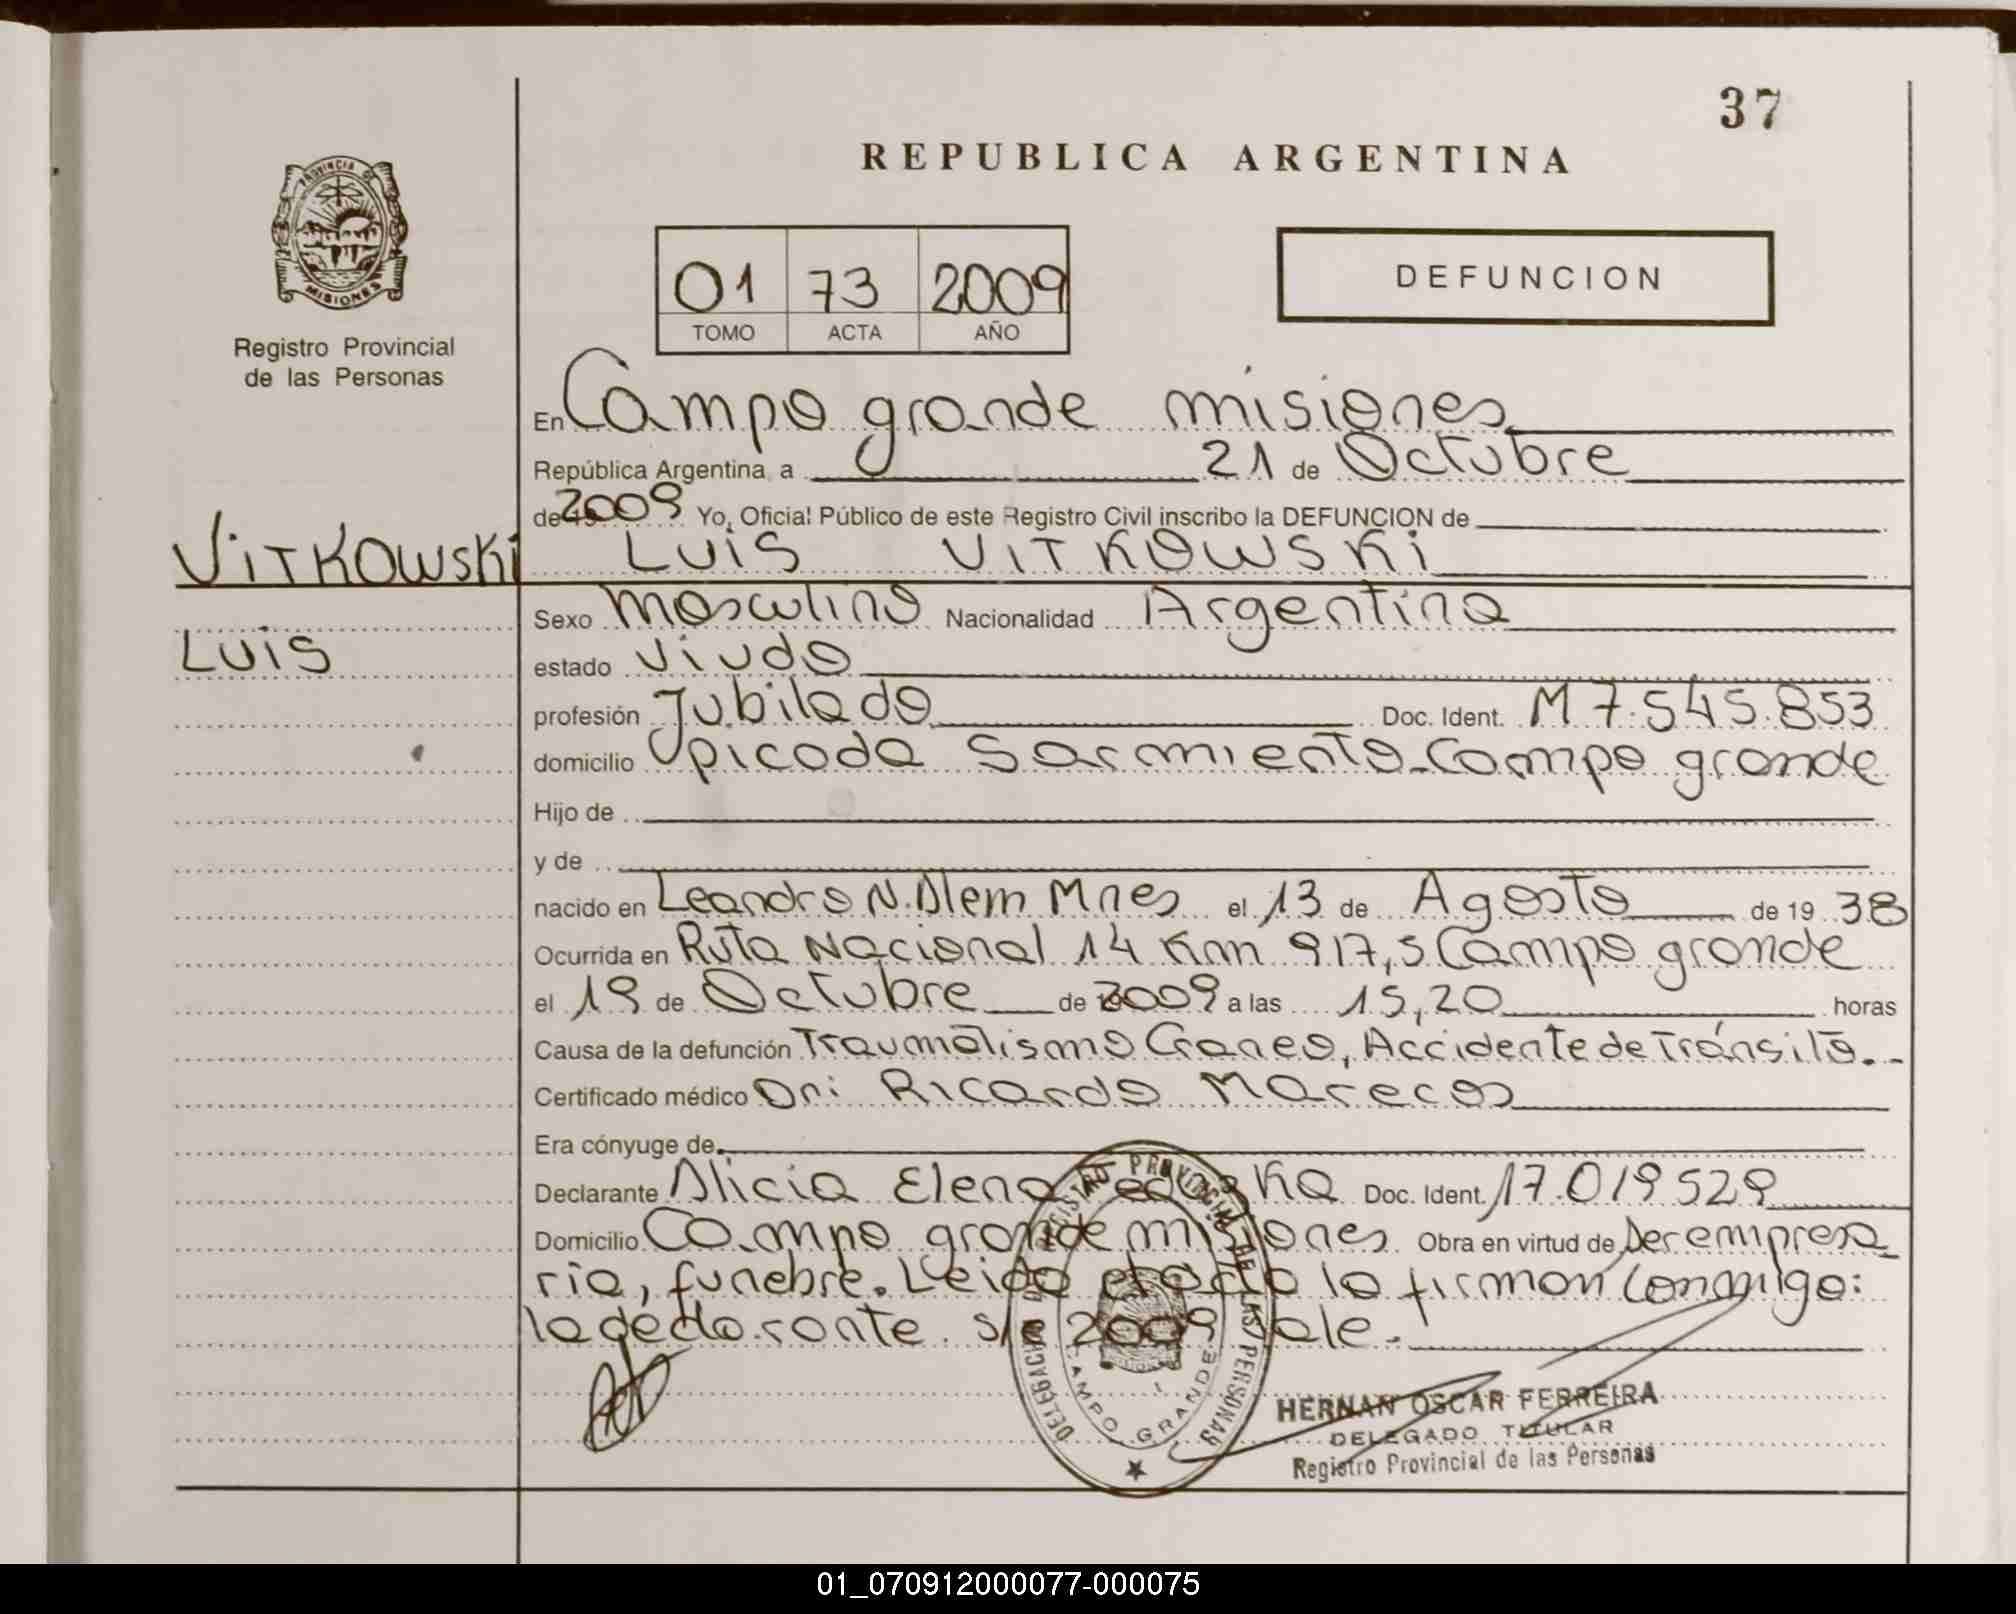 37
REPUBLICA ARGENTINA
PROVINCIA DE
MISIONES
Registro Provincial
de las Personas
01 73 2009
TOMO ACTA AÑO
DEFUNCION
En Campo grande misiones
República Argentina, a 21 de Octubre
de 2009 Yo, Oficial Público de este Registro Civil inscribo la DEFUNCION de
Vitkowski Luis Vitkowski
Luis
Sexo masculino Nacionalidad Argentina
estado Viudo
profesión Jubilado Doc. Ident. M 7.545.853
domicilio picada Sarmiento-Campo grande
Hijo de
y de
nacido en Leandro N. Alem Mnes el 13 de Agosto de 19 38
Ocurrida en Ruta Nacional 14 Km 917,5 Campo grande
el 19 de Octubre de 2009 a las 15,20 horas
Causa de la defunción Traumatismo Craneo, Accidente de Tránsito.-
Certificado médico Ricardo Marecos
Era cónyuge de
Declarante Alicia Elena Doc. Ident. 17.019529
Domicilio Campo grande misiones Obra en virtud de ser empresa
ria, funebre. Leida el acta la firman conmigo:
la declarante. s/r 2009 Vale.
DELEGACION DEL REGISTRO PROVINCIAL DE LAS PERSONAS
CAMPO GRANDE
HERNAN OSCAR FERREIRA
DELEGADO TITULAR
Registro Provincial de las Personas
01_070912000077-000075